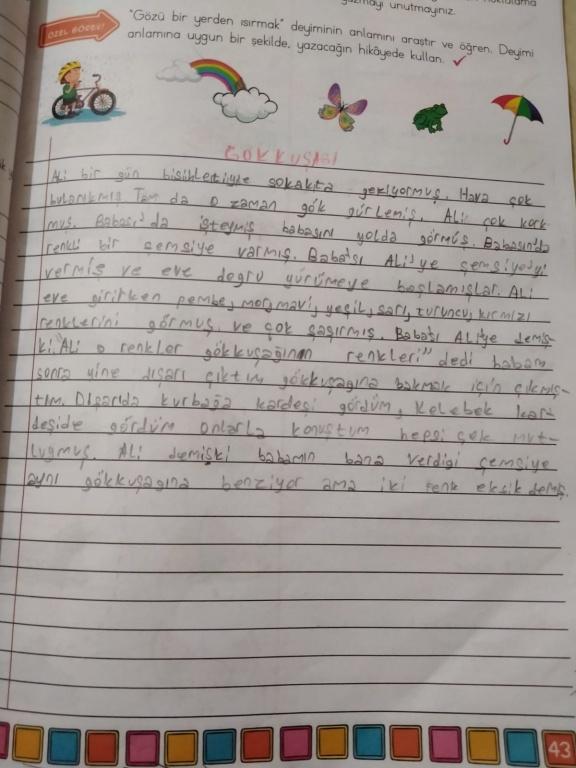 yazmayı unutmayınız.
ÖZEL GÖREV
"Gözü bir yerden ısırmak" deyiminin anlamını araştır ve öğren. Deyimi
anlamına uygun bir şekilde, yazacağın hikâyede kullan. ✓
GÖKKUŞAĞI
Ali bir gün bisikletiyle sokakta geziyormuş. Hava çok
bulanıkmış Tam da o zaman gök gürlemiş. Ali çok kork
muş. Babası'da işteymiş babasını yolda görmüş. Babasında
renkli bir şemsiye varmış. Babası Ali'ye şemsiyeyi
vermiş ve eve doğru yürümeye başlamışlar. Ali
eve girirken pembe, mor, mavi, yeşil, sarı, turuncu, kırmızı
renklerini görmuş ve çok şaşırmış. Babası Ali'ye demiş
ki. "Ali o renkler gökkuşağının renkleri" dedi babam
sonra yine dışarı çıktım gökkuşağına bakmak için çıkmış-
tım. Dışarıda kurbağa kardeşi gördüm, Kelebek kar
deşide gördüm onlarla konuştum hepsi çok mut-
luymuş. Ali demişki babamın bana verdiği şemsiye
aynı gökkuşağına benziyor ama iki renk eksik demiş.
43